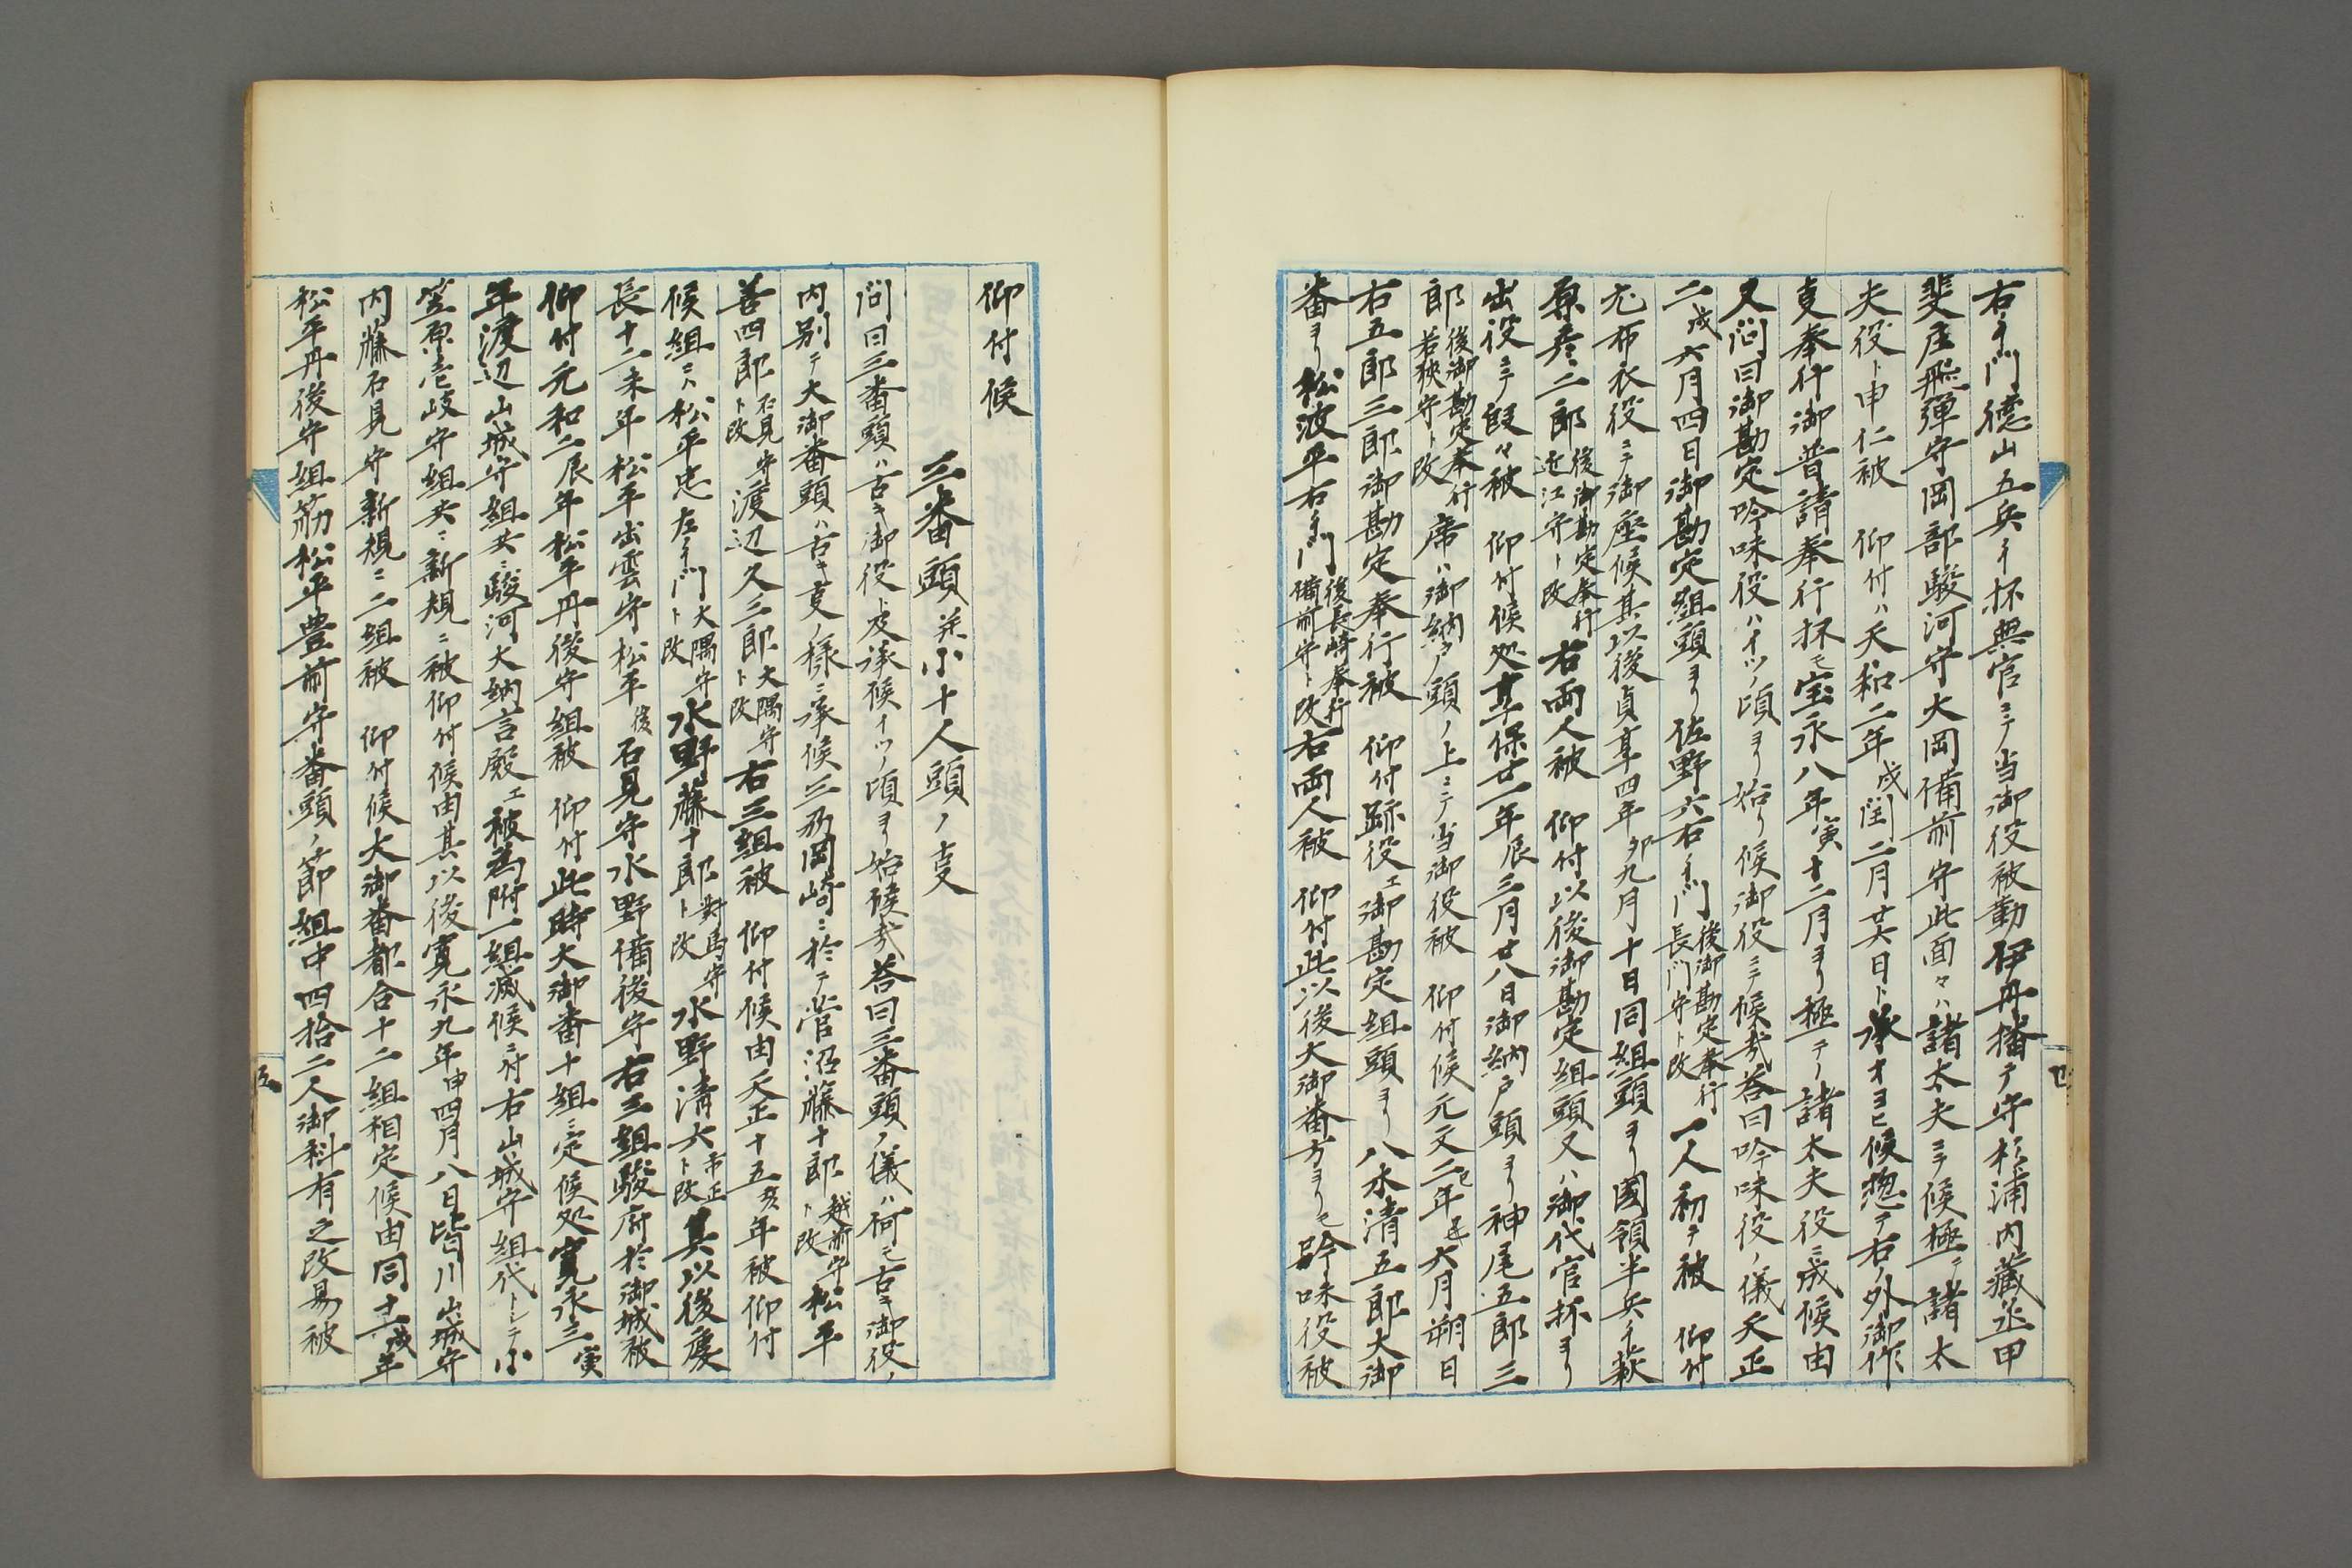 右衛門徳山五兵衛抔無官ニテ当御役被勤伊丹播广守杉浦内蔵丞甲
斐庄飛彈守岡部駿河守大岡備前守此面々ハ諸太夫ニテ候極テ諸太
夫役ト申仁被　仰付ハ天和二年戌閏二月廿六日ト承オヨヒ候惣テ右ノ外御作
叓奉行御普請奉行抔モ宝永八年寅十二月ヨリ極テノ諸太夫役ニ成候由
又問曰御勘定吟味役ハイツノ頃ヨリ始リ候御役ニテ候哉答曰吟味役ノ儀天正
二戌六月四日御勘定組頭ヨリ佐野六右衛門後御勘定奉行長門守ト改一人初テ被　仰付
尤布衣役ニテ御座候其以後貞享四年卯九月十日同組頭ヨリ國領半兵衛萩
原彦二郎後御勘定奉行近江守ト改右両人被　仰付以後御勘定組頭又ハ御代官抔ヨリ
出役ニテ段々被　仰付候処享保廿一年辰三月廿八日御納戸頭ヨリ神尾五郎三
郎後御勘定奉行若狹守ト改席ハ御納戸頭ノ上ニテ当御役被　仰付候元文二年巳六月朔日
右五郎三郎御勘定奉行被　仰付跡役エ御勘定組頭ヨリ八木清五郎大御
番ヨリ松波平右衛門後長崎奉行備前守ト改右両人被　仰付此以後大御番方ヨリモ吟味役被
仰付候
三番頭并小十人頭ノ叓
問曰三番頭ハ古キ御役ト及承候イツノ頃ヨリ始候哉答曰三番頭ノ儀ハ何モ古キ御役ノ
内別テ大御番頭ハ古キ叓ノ様ニ承候三刕岡崎ニ於テ菅沼藤十郎越前守ト改松平
善四郎石見守ト改渡辺久三郎大隅守ト改右三組被　仰付候由天正十五亥年被仰付
候組ニハ松平忠左衛門大隅守ト改水野藤十郎對馬守ト改水野清六市正ト改其以後慶
長十二未年松平出雲守松平後石見守水野備後守右三組駿府於御城被
仰付元和二辰年松平丹後守組被　仰付此時大御番十組ニ定候処寛永三寅
年渡辺山城守組共ニ駿河大納言殿エ被為附一組減候ニ付右山城守組代トシテ小
笠原壱岐守組共ニ新規ニ被仰付候由其以後寛永九年申四月八日皆川山城守
内藤石見守新規ニ二組被　仰付候大御番都合十二組相定候由同十一戌年
松平丹後守組筋松平豊前守番頭ノ節組中四拾二人御科有之改易被
五